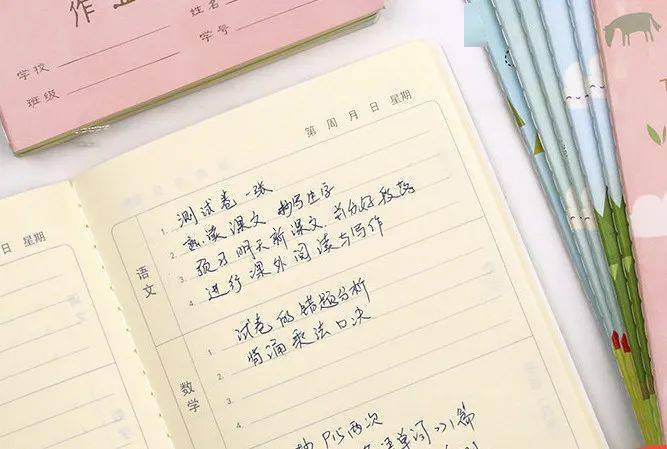 作业
姓名
学校
学号
班级
日 星期
第 周 月 日 星期
语文
1. 测试卷一张
2. 熟读课文 抄写生字
3. 预习明天新课文,并分好段落
4. 进行课外阅读与写作
数学
1. 试卷的错题分析
2. 背诵乘法口决
3.
4.
抄 P15 两次
单词
篇